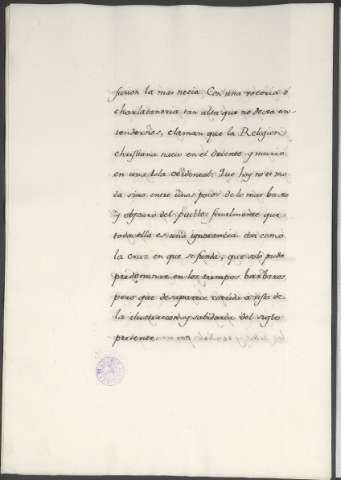 fusion la mas necia. Con una voceria ó
charlataneria tan alta que no desea en-
tenderños, claman que la Religion
christiana nacio en el Oriente y murio
en una Isla occidental: Que hoy no es mo-
da sino entre unos pocos de lo mas baxo
y obscuro del pueblo: finalmente que
toda ella es una ignorancia asi como
la cruz en que se funda, que solo pudo
predominar en los tiempos barbaros,
pero que desaparece corrida a vista de
la ilustracion y sabiduria del siglo
presente